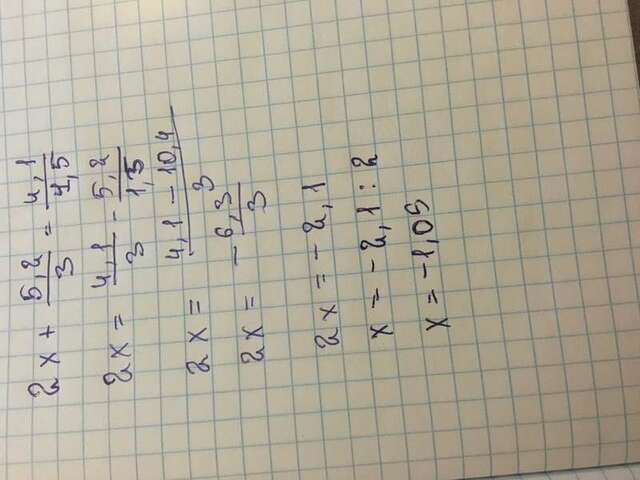 2x + 5,2/3 = 4,1/1,5
2x = 4,1/3 - 5,2/1,5
2x = (4,1 - 10,4)/3
2x = -6,3/3
2x = -2,1
x = -2,1 : 2
x = -1,05